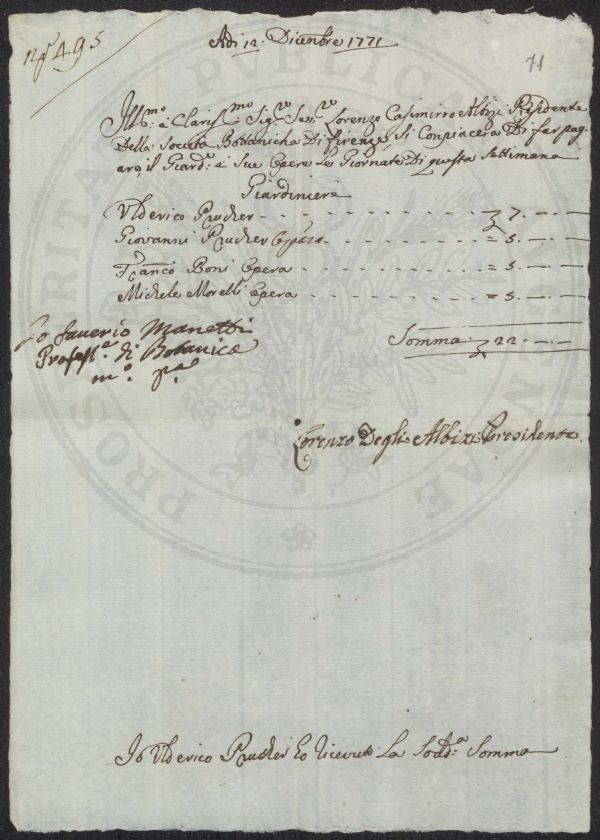 Nº 495
Adi 12. Dicembre 1771
71
Ill:mo e Clariss:mo Sig:re Sen:re Lorenzo Casimirro Albizi Presidente
Della Società Bottanicha Di firenze, Si Conpiacerà Di far pag
are, il Giard:e e Sue Opere Le Giornate Di questa Settimana
Giardiniere
Ulderico Prucher - - - - - - - - 7. - . -
Giovanni Prucher Opera - - - - - = 5. - . -
Franco Boni Opera - - - - - - = 5. - . -
Michele Morelli Opera - - - - - = 5. - . -
Somma . 22 - . -
Io Saverio Manetti
Profess:e di Botanica
m:o p:a
Lorenzo Degli Albizi Presidente
Io Ulderico Prucher ho ricevuto La Sodd:a Somma
PROSPERITATI PUBLICAE